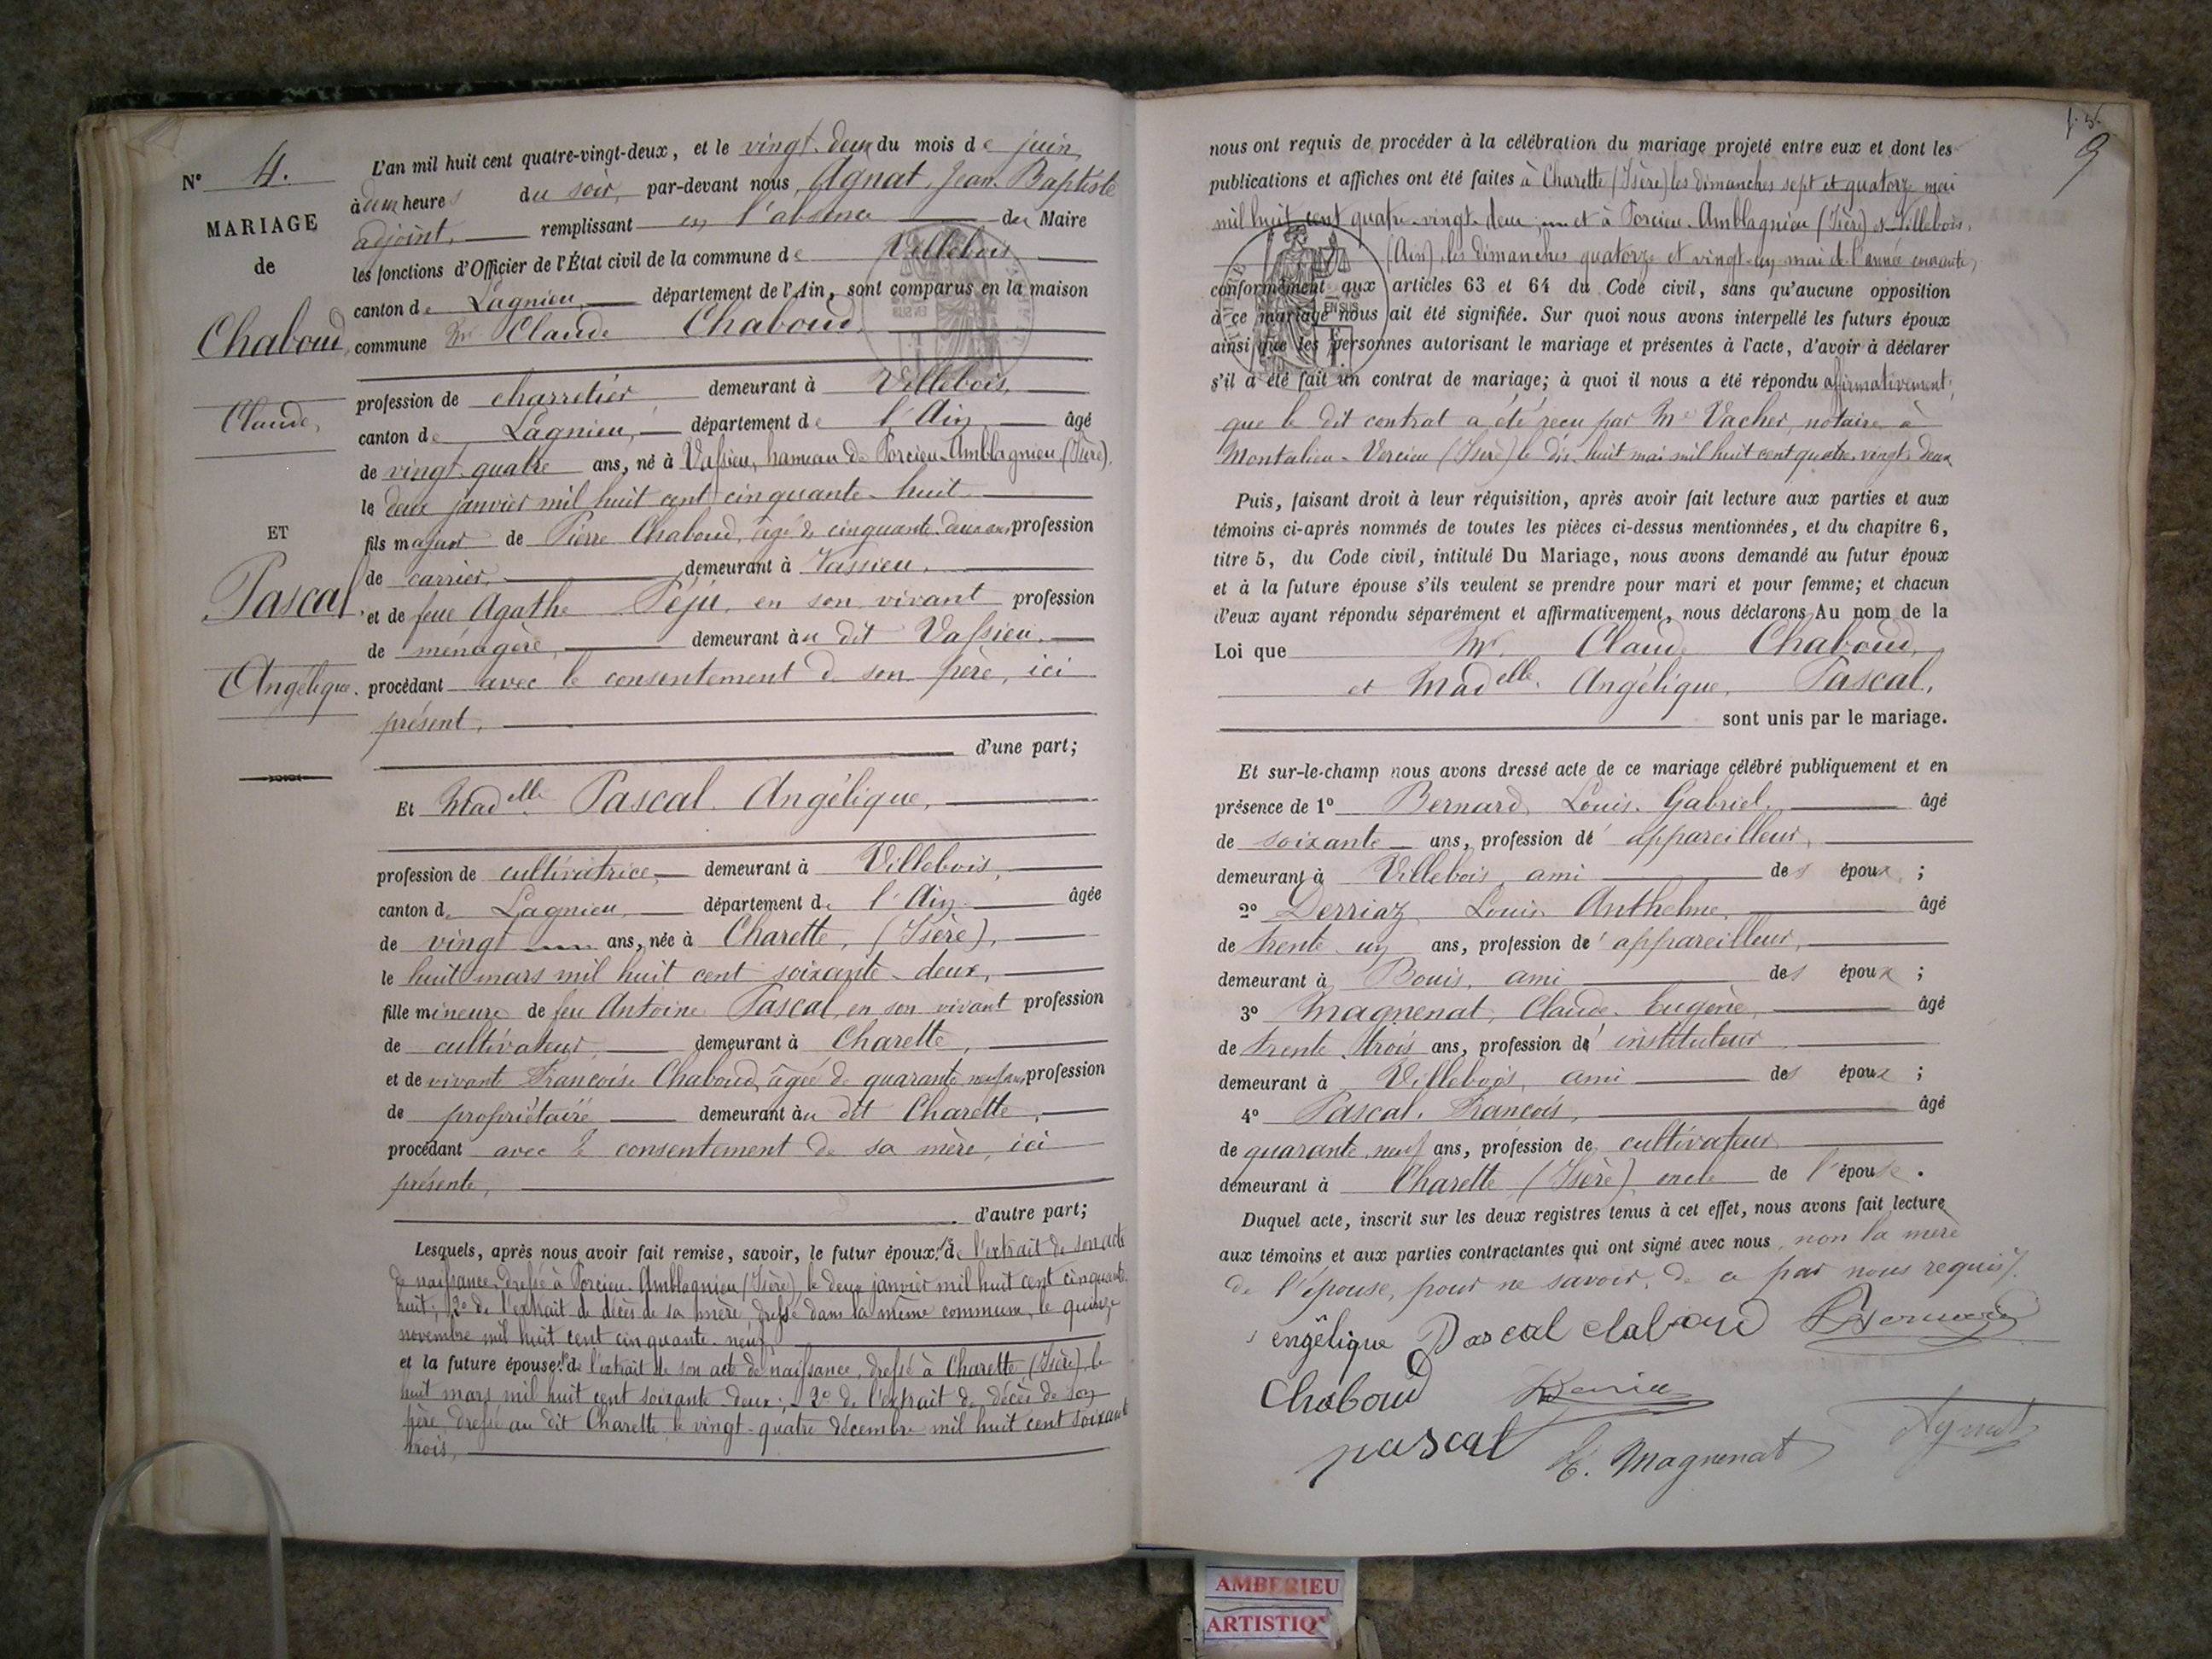 N° 4.
MARIAGE
de
Chaboud,
Claude,
ET
Pascal
Angélique.
L'an mil huit cent quatre-vingt-deux, et le vingt-deux du mois de juin,
à deux heures du soir, par-devant nous, Agnat, Jean-Baptiste
adjoint, remplissant en l'absence du Maire
les fonctions d'Officier de l'État civil de la commune de Villebois
canton de Lagnieu, département de l'Ain, sont comparus en la maison
commune Mr Claude Chaboud
profession de charretier demeurant à Villebois,
canton de Lagnieu, département de l'Ain, âgé
de vingt-quatre ans, né à Vassieu, hameau de Porcieu-Amblagnieu (Isère),
le deux janvier mil huit cent cinquante-huit
fils majeur de Pierre Chaboud, âgé de cinquante-deux ans profession
de carrier, demeurant à Vassieu,
et de feue Agathe Péju, en son vivant profession
de ménagère, demeurant au dit Vassieu.
procédant avec le consentement de son père, ici
présent,
d'une part;
Et Madelle Pascal Angélique,
profession de cultivatrice, demeurant à Villebois,
canton de Lagnieu, département de l'Ain âgée
de vingt ans, née à Charette, (Isère),
le huit mars mil huit cent soixante-deux,
fille mineure de feu Antoine Pascal, en son vivant profession
de cultivateur, demeurant à Charette,
et de vivante Françoise Chaboud, âgée de quarante-neuf ans profession
de propriétaire demeurant au dit Charette,
procédant avec le consentement de sa mère, ici
présente,
d'autre part;
Lesquels, après nous avoir fait remise, savoir, le futur époux: 1° de l'extrait de son acte
de naissance, dressé à Porcieu-Amblagnieu (Isère), le deux janvier mil huit cent cinquante-
huit; 2° de l'extrait de décès de sa mère, dressé dans la même commune, le quinze
novembre mil huit cent cinquante-neuf,
et la future épouse: 1° de l'extrait de son acte de naissance, dressé à Charette (Isère), le
huit mars mil huit cent soixante-deux; 2° de l'extrait de décès de son
père, dressé au dit Charette le vingt-quatre décembre mil huit cent soixante
trois,
9
nous ont requis de procéder à la célébration du mariage projeté entre eux et dont les
publications et affiches ont été faites à Charette (Isère) les dimanches sept et quatorze mai
mil huit cent quatre-vingt-deux; et à Porcieu-Amblagnieu (Isère) et Villebois,
(Ain), les dimanches quatorze et vingt-un mai de l'année courante,
conformément aux articles 63 et 64 du Code civil, sans qu'aucune opposition
à ce mariage nous ait été signifiée. Sur quoi nous avons interpellé les futurs époux
ainsi que les personnes autorisant le mariage et présentes à l'acte, d'avoir à déclarer
s'il a été fait un contrat de mariage; à quoi il nous a été répondu affirmativement,
que le dit contrat a été reçu par Me Vacher, notaire à
Montalieu-Vercieu (Isère) le dix-huit mai mil huit cent quatre-vingt-deux
Puis, faisant droit à leur réquisition, après avoir fait lecture aux parties et aux
témoins ci-après nommés de toutes les pièces ci-dessus mentionnées, et du chapitre 6,
titre 5, du Code civil, intitulé Du Mariage, nous avons demandé au futur époux
et à la future épouse s'ils veulent se prendre pour mari et pour femme; et chacun
d'eux ayant répondu séparément et affirmativement, nous déclarons Au nom de la
Loi que Mr. Claude Chaboud,
et Madelle. Angélique, Pascal,
sont unis par le mariage.
Et sur-le-champ nous avons dressé acte de ce mariage célébré publiquement et en
présence de 1° Bernard, Louis-Gabriel, âgé
de soixante ans, profession d'appareilleur,
demeurant à Villebois, ami des époux;
2° Derriaz Louis Anthelme, âgé
de trente-un ans, profession d'appareilleur,
demeurant à Bouis, ami des époux;
3° Magnenat, Claude-Eugène, âgé
de trente-trois ans, profession d'instituteur
demeurant à Villebois, ami des époux;
4° Pascal, François, âgé
de quarante-neuf ans, profession de cultivateur
demeurant à Charette (Isère) oncle de l'épouse.
Duquel acte, inscrit sur les deux registres tenus à cet effet, nous avons fait lecture
aux témoins et aux parties contractantes qui ont signé avec nous, non la mère
de l'épouse, pour ne savoir, de ce par nous requis.
engélique Pascal claboud Bernard
Chaboud Derriaz
pascal E. Magnenat Agnat
AMBERIEU
ARTISTIQ